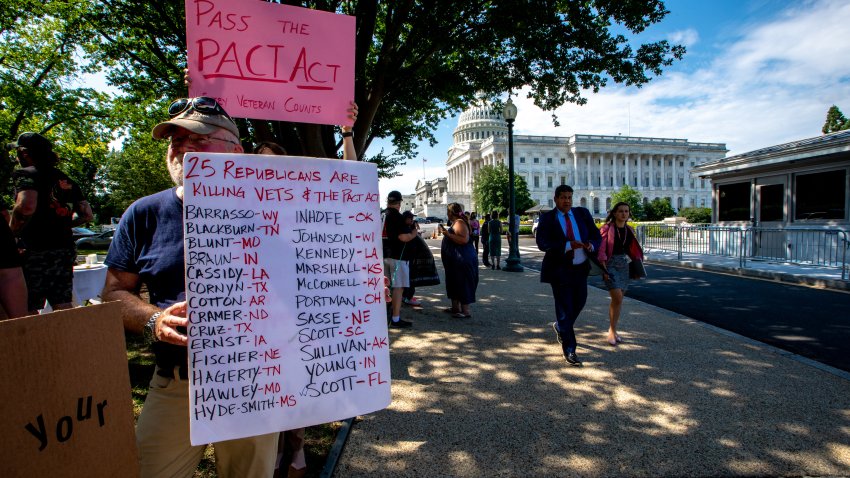 PASS THE
PACT ACT
VETERAN COUNTS
25 REPUBLICANS ARE
KILLING VETS & THE PACT ACT
BARRASSO-WY
BLACKBURN-TN
BLUNT-MO
BRAUN-IN
CASSIDY-LA
CORNYN-TX
COTTON-AR
CRAMER-ND
CRUZ-TX
ERNST-IA
FISCHER-NE
HAGERTY-TN
HAWLEY-MO
HYDE-SMITH-MS
INHOFE-OK
JOHNSON-WI
KENNEDY-LA
MARSHALL-KS
MCCONNELL-KY
PORTMAN-OH
SASSE-NE
SCOTT-SC
SULLIVAN-AK
YOUNG-IN
SCOTT-FL
your